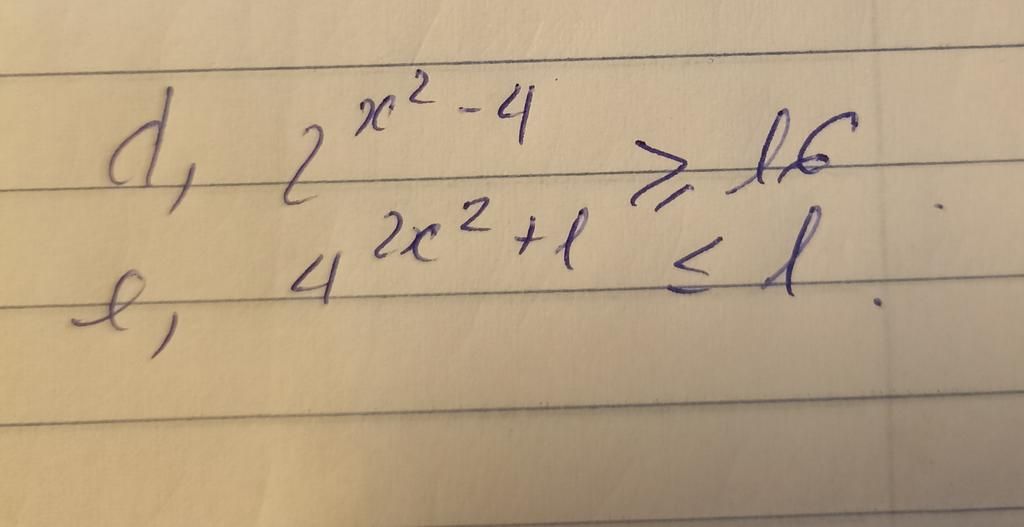 d, 2^{x^2 - 4} ⩾ 16
e, 4^{2x^2 + 1} ≤ 1.